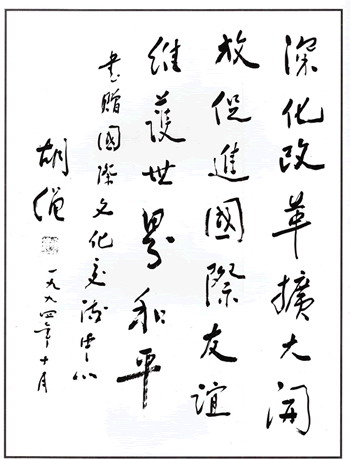 深化改革擴大開
放促進國際友誼
維護世界和平
書贈國際文化交流中心
胡繩
一九九四年十月